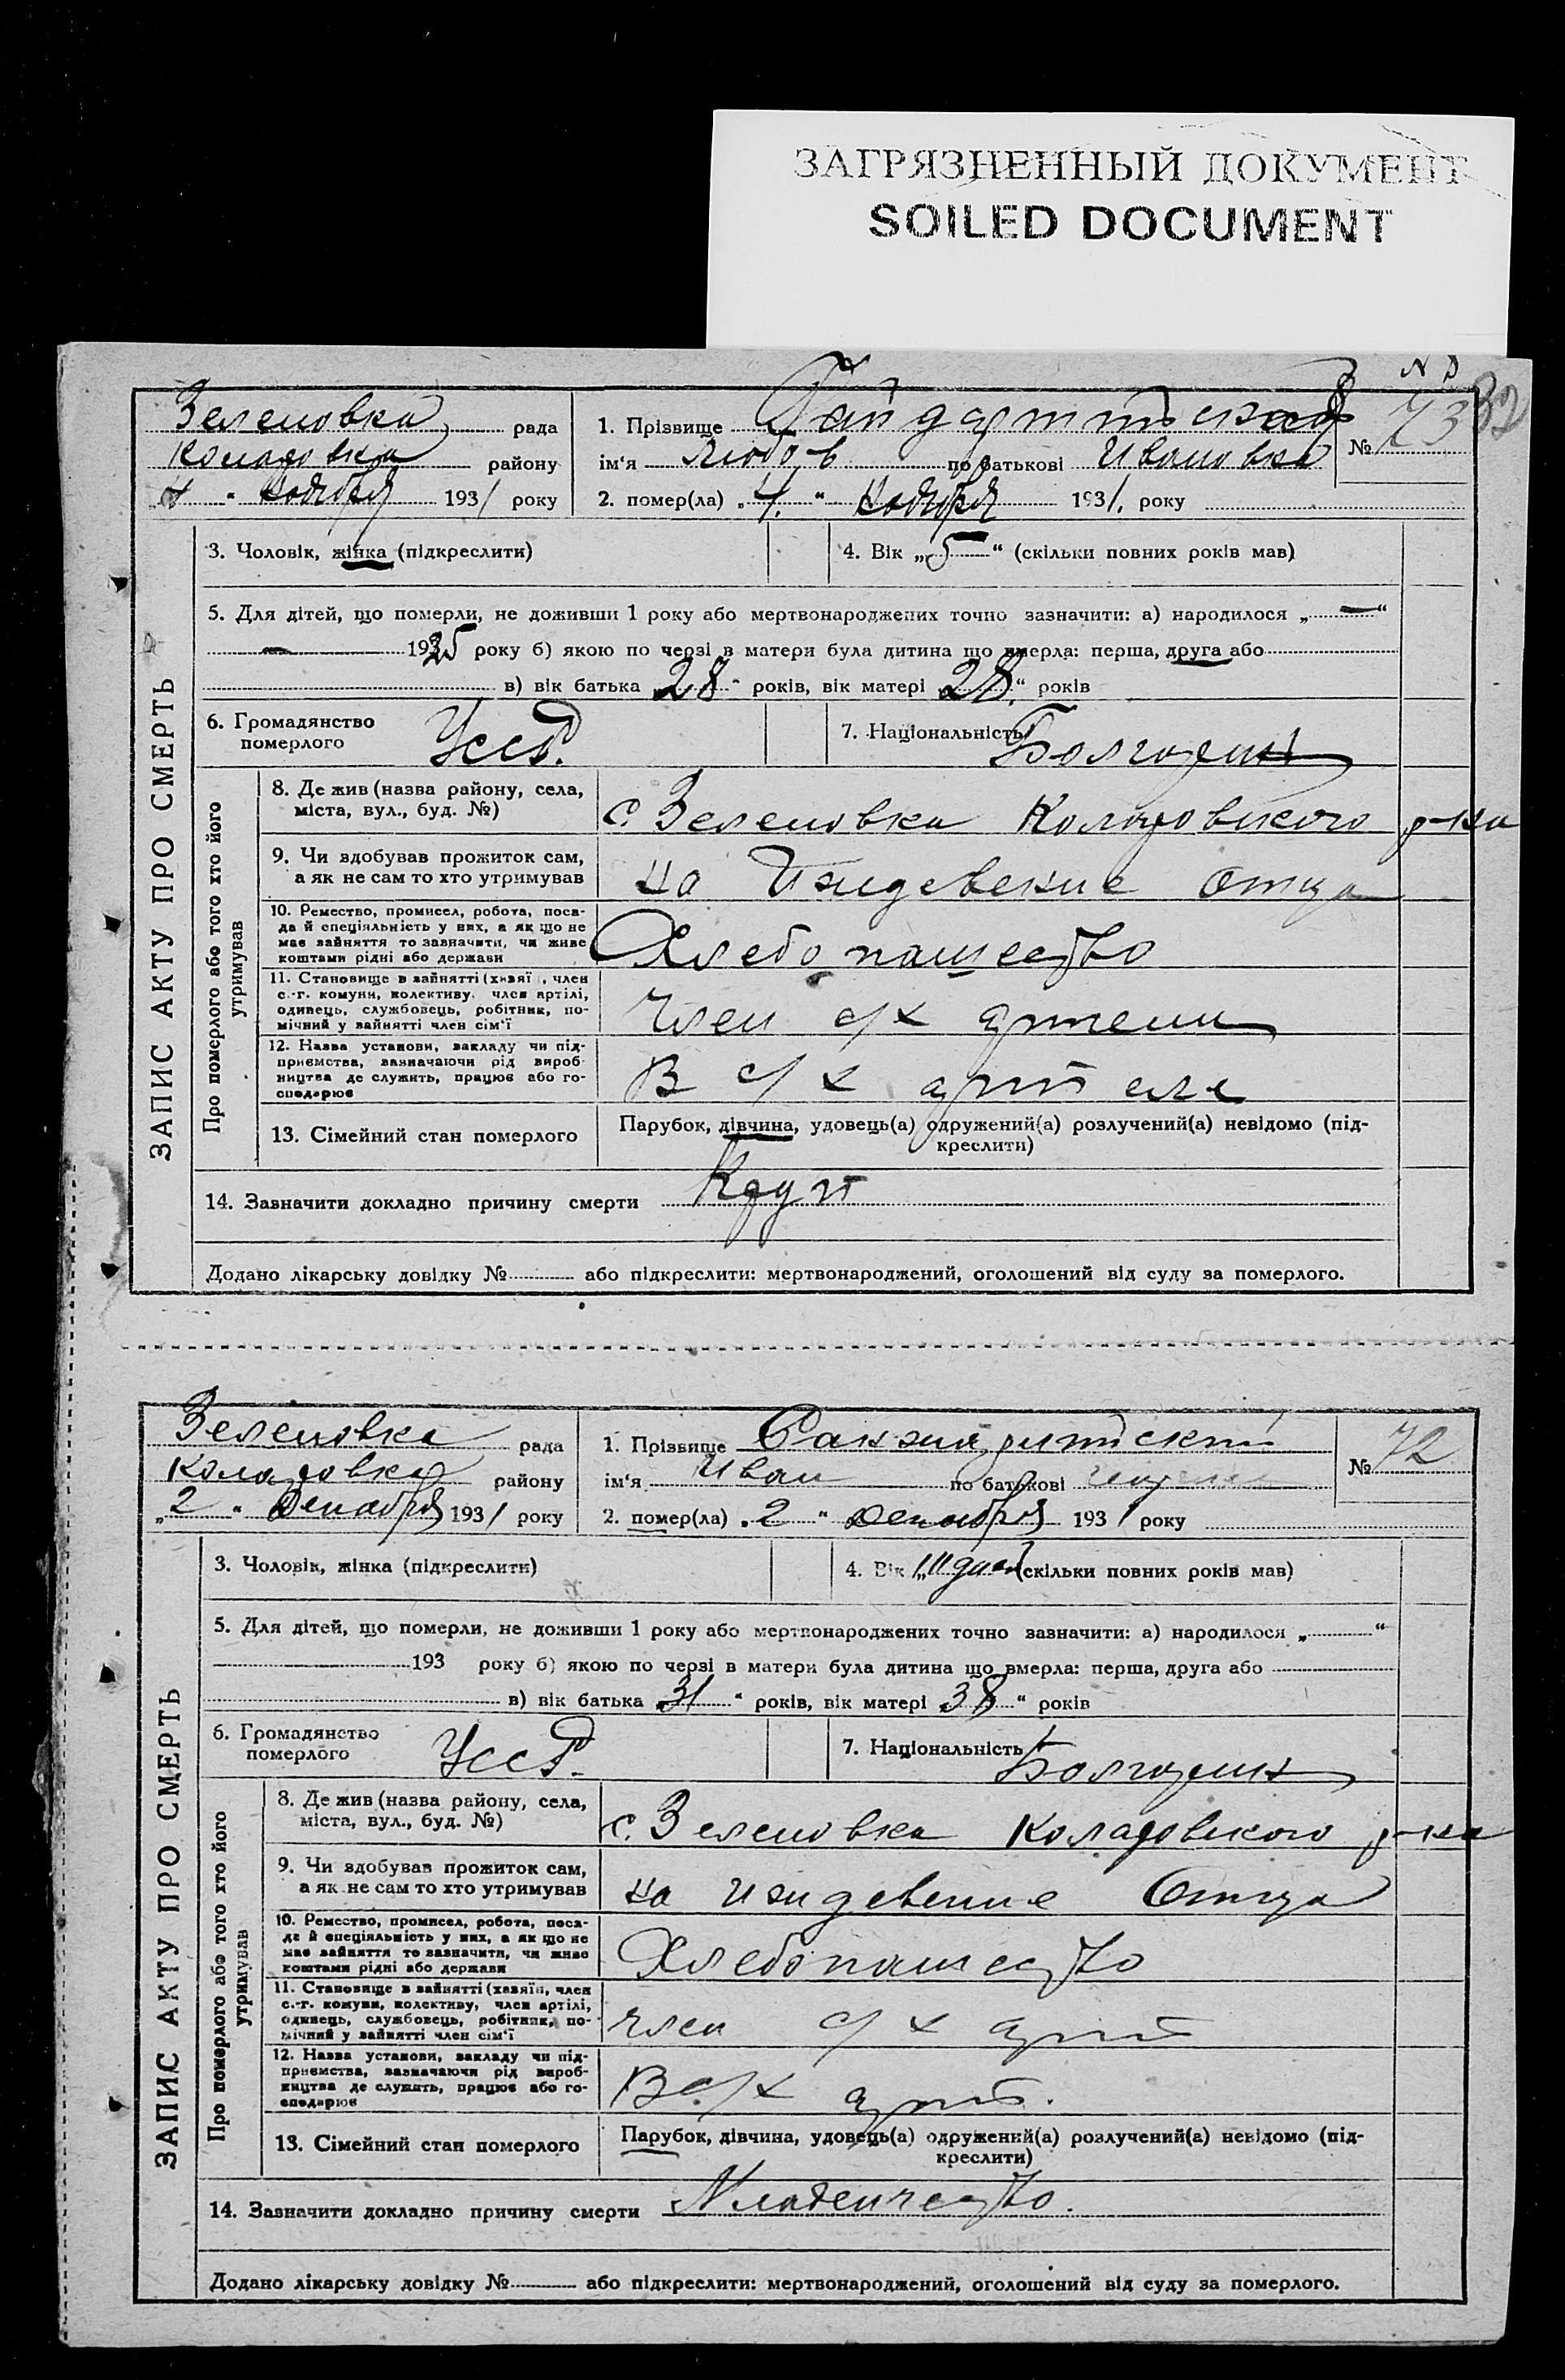 ЗАГРЯЗНЕННЫЙ ДОКУМЕНТ
SOILED DOCUMENT
ЗАПИС АКТУ ПРО СМЕРТЬ
Зеленовка рада
района
4 " Ноября 1931 року
№ 73
1. Прізвище
ім'я Любовь по батькові Ивановна
2. помер(ла) „4." Ноября 1931, року
3. Чоловік, жінка (підкреслити)
4. Вік „5" (скільки повних років мав)
5. Для дітей, що померли, не доживши 1 року або мертвонароджених точно зазначити: а) народилося „—"
— 1925 року б) якою по черзі в матери була дитина що вмерла: перша, друга або
в) вік батька „28" років, вік матері „28." років
6. Громадянство
померлого
Усср.
7. Національність Болгарин
Про померлого або того хто його
утримував
8. Де жив (назва району, села,
міста, вул., буд. №)
с. Зеленовка р-на
9. Чи здобував прожиток сам,
а як не сам то хто утримував
на Иждевение Отца
10. Ремество, промисел, робота, поса-
да й спеціяльність у них, а як що не
має зайняття то зазначити, чи живе
коштами рідні або держави
Хлебопашество
11. Становище в зайнятті (хазяїн, член
с.-г. комуни, колективу, член артілі,
одинець, службовець, робітник, по-
мічний у зайнятті член сім'ї
член с/х артели
12. Назва установи, закладу чи під-
приємства, зазначаючи рід вироб-
ництва де служить, працює або го-
сподарює
В с/х артеле
13. Сімейний стан померлого
Парубок, дівчина, удовець(а) одружений(а) розлучений(а) невідомо (під-
креслити)
14. Зазначити докладно причину смерти Круп
Додано лікарську довідку № або підкреслити: мертвонароджений, оголошений від суду за померлого.
ЗАПИС АКТУ ПРО СМЕРТЬ
Зеленовка рада
району
„2" Декабря 1931 року
№ 72
1. Прізвище
ім'я Иван по батькові
2. помер(ла) „2" Декабря 1931 року
3. Чоловік, жінка (підкреслити)
4. Вік „11 дней (скільки повних років мав)
5. Для дітей, що померли, не доживши 1 року або мертвонароджених точно зазначити: а) народилося „ "
193 року б) якою по черзі в матери була дитина що вмерла: перша, друга або
в) вік батька „31" років, вік матері „38" років
6. Громадянство
померлого
Усср.
7. Національність Болгарин
Про померлого або того хто його
утримував
8. Де жив (назва району, села,
міста, вул., буд. №)
с. Зеленовка р-на
9. Чи здобував прожиток сам,
а як не сам то хто утримував
на иждевение Отца
10. Ремество, промисел, робота, поса-
да й спеціяльність у них, а як що не
має зайняття то зазначити, чи живе
коштами рідні або держави
Хлебопашество
11. Становище в зайнятті (хазяїн, член
с.-г. комуни, колективу, член артілі,
одинець, службовець, робітник, по-
мічний у зайнятті член сім'ї
член с/х арт
12. Назва установи, закладу чи під-
приємства, зазначаючи рід вироб-
ництва де служить, працює або го-
сподарює
В с/х арт.
13. Сімейний стан померлого
Парубок, дівчина, удовець(а) одружений(а) розлучений(а) невідомо (під-
креслити)
14. Зазначити докладно причину смерти Младенчество.
Додано лікарську довідку № або підкреслити: мертвонароджений, оголошений від суду за померлого.